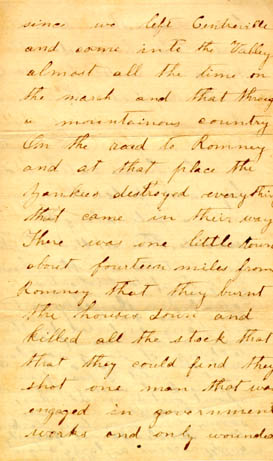 since we left Centreville
and come into the Valley
almost all the time on
the march and that throug
a mountainous country
On the road to Romney
and at that place the
Yankees destroyed everythin
that came in their way
There was one little town
about fourteen miles from
Romney that they burnt
the houses down and
killed all the stock that
that they could find they
shot one man that was
engaged in government
works and only wounded